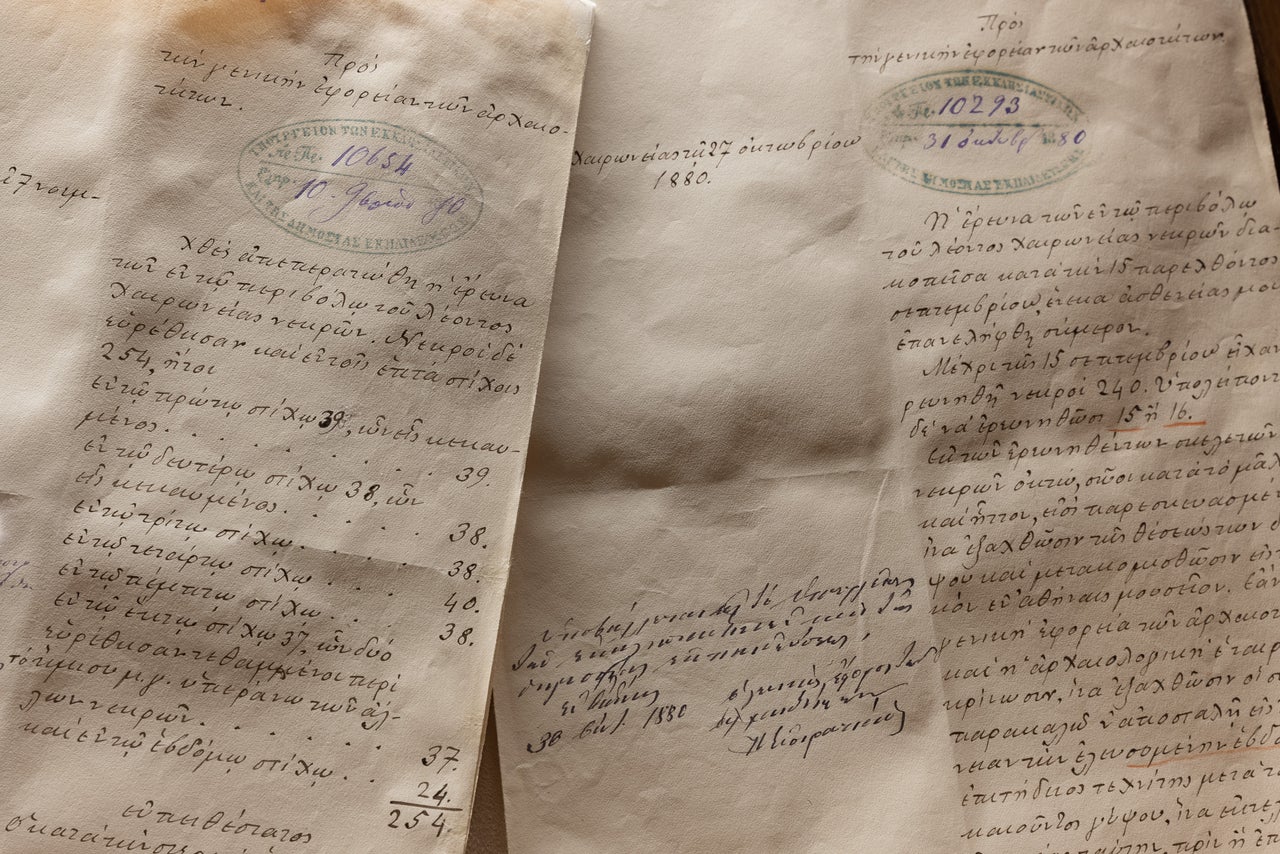 Πρὸς
τὴν γενικὴν ἐφορείαν τῶν ἀρχαιο-
τήτων.
ΥΠΟΥΡΓΕΙΟΝ ΤΩΝ ΕΚΚΛΗΣΙΑΣΤΙΚΩΝ
Ἀρ. Πρ. 10654
10. 9βρίου 80
ΚΑΙ ΤΗΣ ΔΗΜΟΣΙΑΣ ΕΚΠΑΙΔΕΥΣΕΩΣ
Χθὲς ἀπεπερατώθη ἡ ἔρευνα
τῶν ἐν τῷ περιβόλῳ τοῦ λέοντος
Χαιρωνείας νεκρῶν. Νεκροὶ δὲ
εὑρέθησαν καὶ ἐν τοῖς ἑπτὰ στίχοις
254, ἤτοι
ἐν τῷ πρώτῳ στίχῳ 39, ὧν εἷς κεκαυ-
μένος. . . . . . . . 39.
ἐν τῷ δευτέρῳ στίχῳ 38, ὧν
εἷς κεκαυμένος. . . . . 38.
ἐν τῷ τρίτῳ στίχῳ. . . . 38.
ἐν τῷ τετάρτῳ στίχῳ . . . 40.
ἐν τῷ πέμπτῳ στίχῳ. . . 38.
ἐν τῷ ἕκτῳ στίχῳ 37, ὧν δύο
εὑρέθησαν τεθαμμένοι περὶ
τὸ ἥμισυ μ.γ. ὑπεράνω τῶν ἄλ-
λων νεκρῶν. . . . . . 37.
καὶ ἐν τῷ ἑβδόμῳ στίχῳ . . 24.
254.
εὐπειθέστατος
Πρὸς
τὴν γενικὴν ἐφορείαν τῶν ἀρχαιοτήτων.
ΥΠΟΥΡΓΕΙΟΝ ΤΩΝ ΕΚΚΛΗΣΙΑΣΤΙΚΩΝ
Ἀρ. Πρ. 10293
31 ὀκτωβρ 1880
ΚΑΙ ΤΗΣ ΔΗΜΟΣΙΑΣ ΕΚΠΑΙΔΕΥΣΕΩΣ
Χαιρωνείας τῇ 27 ὀκτωβρίου
1880.
Ἡ ἔρευνα τῶν ἐν τῷ περιβόλῳ
τοῦ λέοντος Χαιρωνείας νεκρῶν δια-
κοπεῖσα κατὰ τὴν 15 παρελθόντος
σεπτεμβρίου, ἕνεκα ἀσθενείας μου
ἐπανελήφθη σήμερον.
Μέχρι τῆς 15 σεπτεμβρίου εἶχαν
ρευνηθῆ νεκροὶ 240. Ὑπολείπον
δὲ νὰ ἐρευνηθῶσι 15 ἢ 16.
ἐκ τῶν ἐρευνηθέντων σκελετῶν
νεκρῶν ὀκτώ, σῶοι κατὰ τὸ μᾶλ
καὶ ἧττον, εἰσὶ παρεσκευασμέ
ἵνα ἐξαχθῶσιν τῆς θέσεώς των
ψου καὶ μετακομισθῶσιν εἰς
κὸν ἐν Ἀθήναις μουσεῖον. ἐὰν
γενικὴ ἐφορεία τῶν ἀρχαιοτ
καὶ ἡ ἀρχαιολογικὴ ἑταιρ
κρίνωσιν, ἵνα ἐξαχθῶσιν οἱ σ
παρακαλῶ ν' ἀποσταλῇ εἰς
νειαν τὴν ἐλευσομένην ἑβδο
ἐπιτήδειος τεχνίτης μετὰ
γύψου, ἵνα
πρὶν ἢ
Ὑποβάλλεται
τῶν ἐκκλησιαστικῶν καὶ τῆς
δημοσίας ἐκπαιδεύσεως,
ἐν Ἀθήναις
30 ὀκτ. 1880